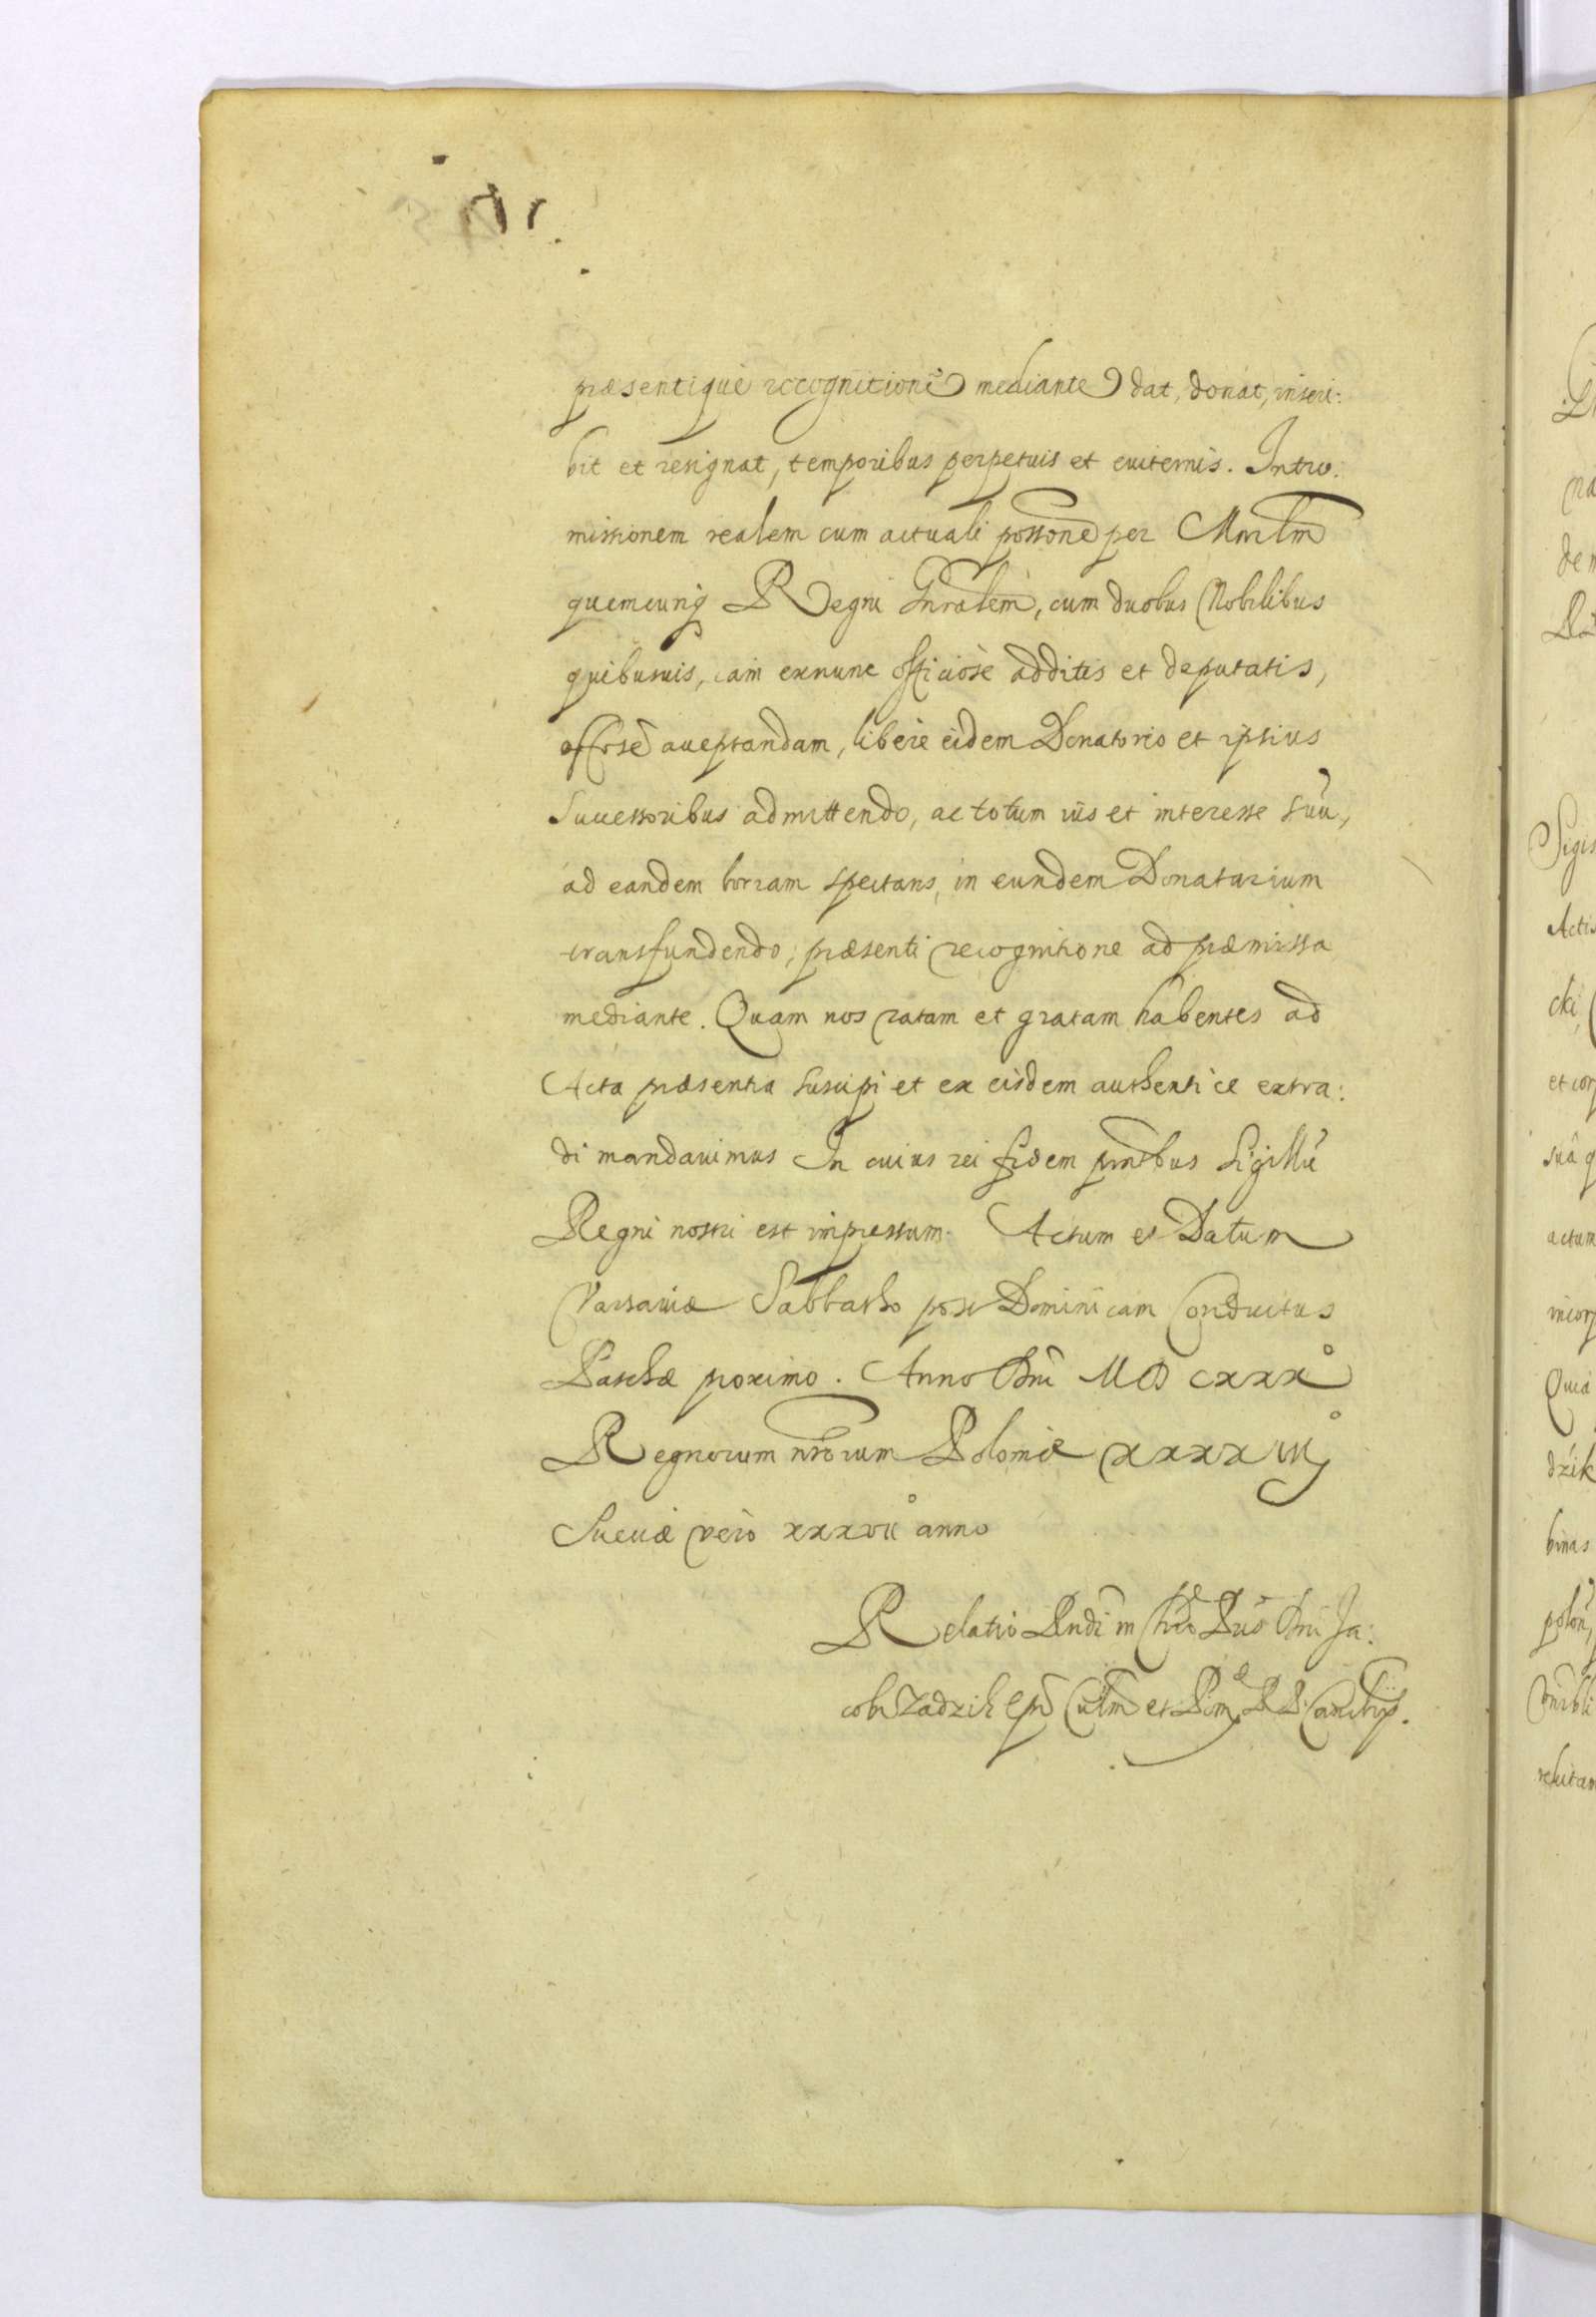 præsentiquè recognitione mediante dat, donat, inscri:
bit et resignat, temporibus perpetuis et euiternis. Intro:
missionem realem cum actuali possone per Mnrlm
quemcunq Regni Gnralem, cum duobus Nobilibus
quibusuis, iam exnunc officiosè additis et deputatis,
offosè acceptandam, liberè eidem Donatorio et ipsius
Successoribus admittendo, ac totum ius et interesse suũ,
ad eandem spectans, in eundem Donatarium
transfundendo; præsenti recognitione ad præmissa
mediante. Quam nos ratam et gratam habentes ad
Acta præsentia suscipi et ex eisdem authenticè extra:
di mandauimus In cuius rei fidem pntibus Sigillũ
Regni nostri est impressum. Actum et Datum
Varsauiæ Sabbatho post Dominicam Conductus
Paschæ proximo. Anno Dni MD CXXX°
Regnorum nrorum Poloniæ XXXXIIJ°
Sueciæ verò XXXVII° anno
Relatio Rndi in Chro Pris Dni Ja:
cobi Zadzik Epi Culm et Pom R. P. Cancrij.